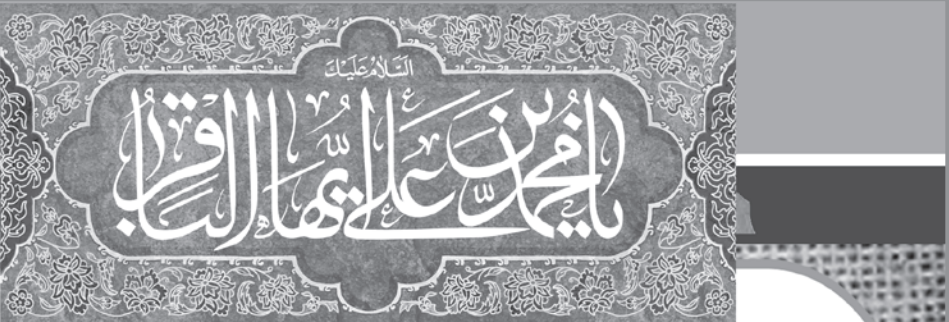 السَّلامُ عَلَيْكَ
يا محمد بن علي أيها الباقر